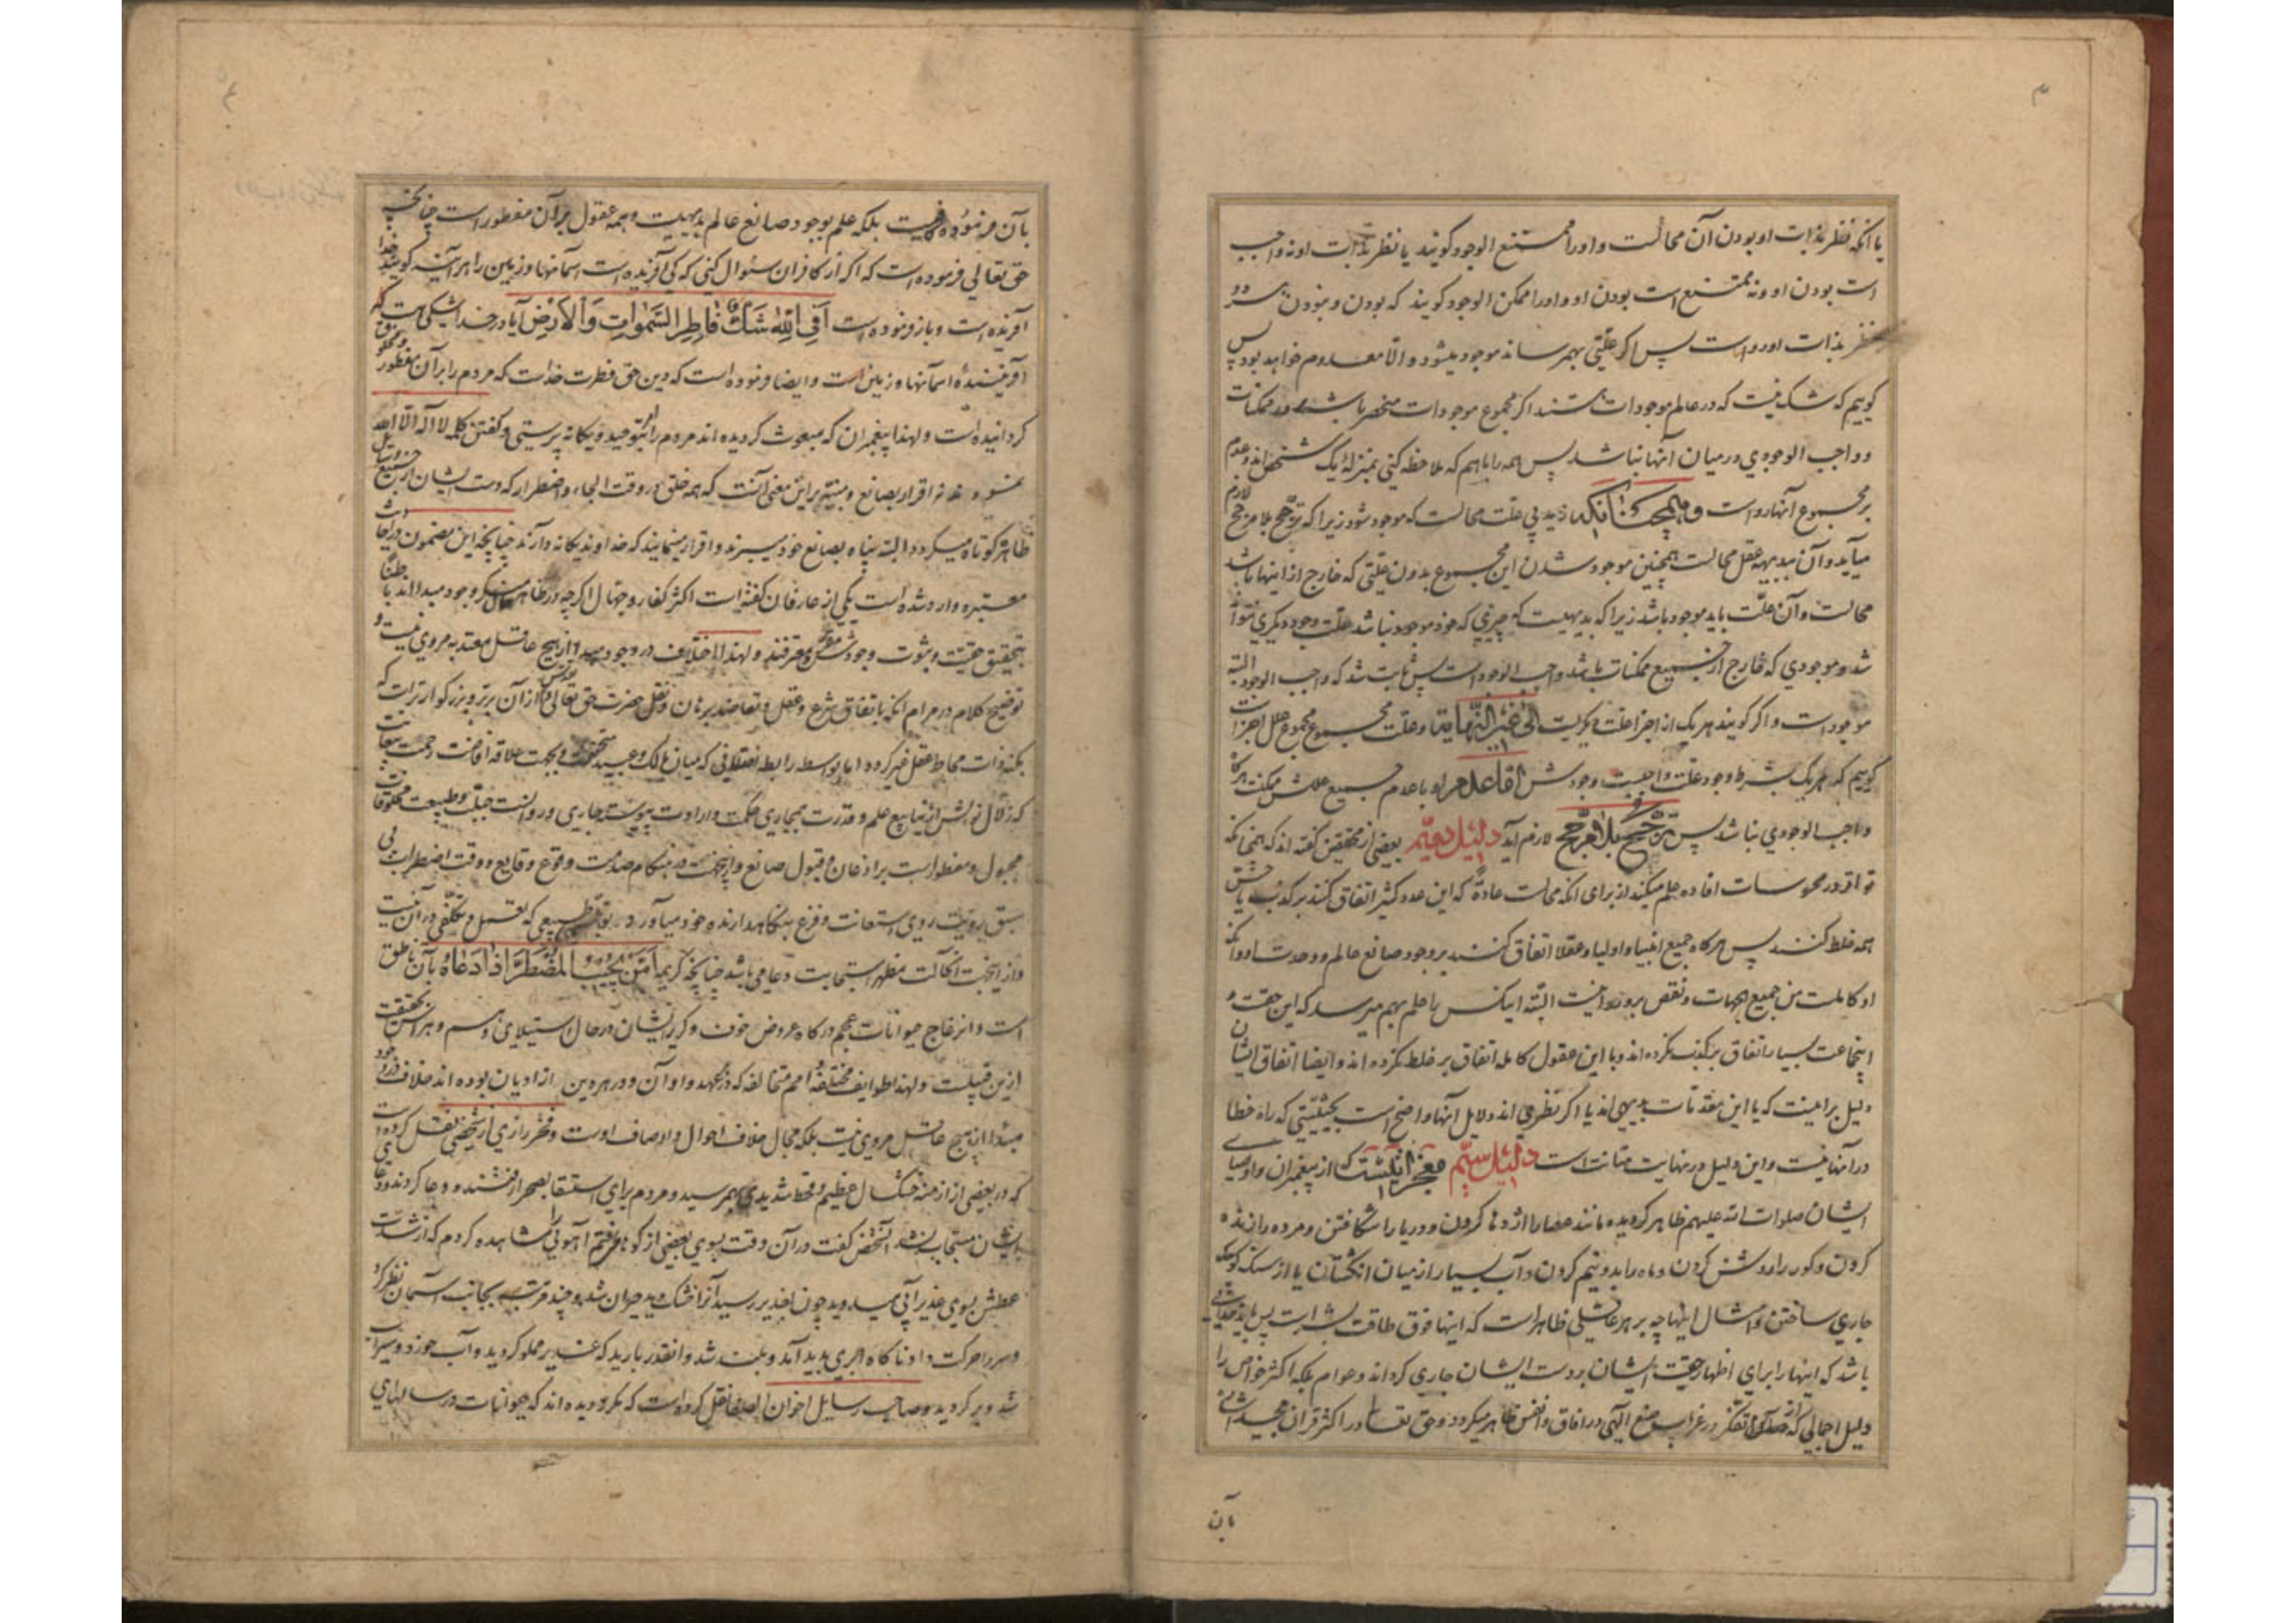 ۳
یا انکه نظر بذات او بودن آن محالست و او را ممتنع الوجود گویند یا نظر بذات او نه واجب
است بودن او و نه ممتنع است بودن او و او را ممکن الوجود گویند که بودن و نبودن هر دو
نظر بذات او رواست پس اگر علّتی بهم رساند موجود میشود و الّا معدوم خواهد بود پس
گوییم که شک نیست که در عالم موجودات هستند اگر مجموع موجودات منحصر باشد در ممکنات
و واجب الوجودی در میان آنها نباشد پس همه را با هم که ملاحظه کنی بمنزلهٔ یک شخص اند و عدم
بر مجموع آنها رواست و همچنانکه زید بی علت محالست که موجود شود زیرا که ترجّح بلا مرجح لازم
میآید و آن ببدیههٔ عقل محالست همچنین موجود شدن این مجموع بدون علّتی که خارج از اینها باشد
محالست و آن علّت باید موجود باشد زیرا که بدیهیست که چیزی که خود موجود نباشد علّت وجود دیگری نتواند
شد و موجودی که خارج از جمیع ممکنات باشد واجب الوجود است پس ثابت شد که واجب الوجود البته
موجود است و اگر گویند هر یک از اجزا علت دیگریست الی غیر النهایة و علّت مجموع مجموع علل اجزاست
گوییم که هر یک بشرط وجود علت واجبست وجودش اقلا عدم او با عدم جمیع عللش ممکنست هرگاه
واجب الوجودی نباشد پس ترجّح بلا مرجّح لازم آید دلیل دویّم بعضی از محققین گفته اند که همچنانکه
تواتر در محسوسات افاده علم میکند از برای انکه محالست عادةً که این عدد کثیر اتفاق کنند بر کذب یا حسّ
همه غلط کنند پس هرگاه جمیع انبیا و اولیا و عقلا اتفاق کنند بر وجود صانع عالم و وحدت او و انکه
او کاملست من جمیع الجهات و نقص بر او روا نیست البتّه اینکس را علم بهم میرسد که این حقست و
اینجماعت بسیار اتفاق بر کذب نکرده اند و با این عقول کامله اتفاق بر غلط نکرده اند و ایضا اتفاق ایشان
دلیل بر اینست که یا این مقدمات بدیهی اند یا اگر نظری اند دلایل آنها واضح است بحیثیّتی که راه خطا
در آنها نیست و این دلیل در نهایت متانت است دلیل سیّم معجزاتیست که از پیغمبران و اوصیای
ایشان صلوات الله علیهم ظاهر گردیده مانند عصا را اژدها کردن و دریا را شکافتن و مرده را زنده
کردن و کور را روشن کردن و ماه را بدو نیم کردن و آب بسیار از میان انگشتان یا از سنک کوچک
جاری ساختن و امثال اینها چه بر هر عاقلی ظاهر است که اینها فوق طاقت بشر است پس باید خدائی
باشد که اینها را برای اظهار حقیّت ایشان بر دست ایشان جاری کرداند و عوام بلکه اکثر خواص را
دلیل اجمالی که از تفکر در غرایب صنع الهی در آفاق و انفس ظاهر میگردد و حق تعالی در اکثر قرآن مجید اشاره
بآن
بآن فرموده کافیست بلکه علم بوجود صانع عالم بدیهیست و همه عقول بر آن مفطور است چنانچه
حق تعالی فرموده است که اگر از کافران سئوال کنی که کی آفرنده است آسمانها و زمین را هر آینه گویند خدا
آفرنده است و باز فرموده است أَفِی اللّهِ شَكٌّ فَاطِرِ السَّمٰوَاتِ وَالْأَرْضِ آیا در خدا شکی هست که
آفریننده آسمانها و زمین است و ایضا فرموده است که دین حق فطرت خداست که مردم را بر آن مفطور و مخلوق
گردانیده است و لهذا پیغمبران که مبعوث گردیده اند مردم را امر بتوحید و یگانه پرستی و گفتن کلمه لا اله الّا الله
نمودند نه اقرار بصانع و منبّه بر این معنی آنست که همه خلق در وقت الجاء و اضطرار که دست ایشان از جمیع وسایل
ظاهر کوتاه میگردد البته پناه بصانع خود میبرند و اقرار مینمایند که خداوند یگانه دارند چنانچه این مضمون در احادیث
معتبره وارد شده است یکی از عارفان گفته است اکثر کفار و جهال اگرچه در ظاهر منکر وجود مبدا اند باطناً
بتحقیق حقیّت و ثبوت وجودش معترفند و لهذا اختلاف در وجود مبدا از هیچ عاقل معتد به مروی نیست و
توضیح کلام در مرام انکه باتفاق شرع و عقل و تعاضد برهان و نقل حضرت حق تعالی از آن برتر و بزرگوارتر است که
بکنه ذات محاط عقل غیر گردد اما بواسطه رابطه که میان مالک و عبید متحقق و بجهت علاقه افاضت رحمت
که زلال نوالش از ینابیع علم و قدرت بمجاری حکمت و ارادت پیوسته جاری و روانست جبلّت و طبیعت مخلوقات
مجبول و مفطور است بر اذعان و قبول صانع و ازینجهت در هنگام صدمت وقوع وقایع و وقت اضطرار بی
سبق رویّت روی استعانت و فزع بنگاهدارنده خود میآورد بتوجه طبیعی که تعمل و تکلفی در آن نیست
و از اینجهت انحالت مظهر استجابت دعا می باشد چنانچه کریمه أَمَّن یُجِیبُ الْمُضْطَرَّ إِذَا دَعَاهُ بآن ناطق
است و انزعاج حیوانات عجم در کاه عروض خوف و گریز ایشان در حال استیلای وهم و هراس بحقیقت
ازین قبیلست و لهذا طوایف مختلفه و امم متخالفه که در هر عهد و اوان و در هر دین از ادیان بوده اند خلاف در وجود
مبدا از هیچ عاقل مروی نیست بلکه مجال خلاف احوال و اوصاف اوست و فخر رازی از شخصی نقل کرده است
که در بعضی از ازمنه خشک سال عظیم و قحط شدیدی بهم رسید و مردم برای استسقا بصحرا رفتند و دعا کردند و دعای
ایشان مستجاب نشد آنشخص گفت در آن وقت بسوی بعضی از کوهها رفتم آهوئی را مشاهده کردم که از شدّت
عطش بسوی غدیر آبی میدوید چون بغدیر رسید آنرا خشک دید حیران شد و چند مرتبه بجانب آسمان نظر کرد
و سر را حرکت داد ناگاه ابری پدید آمد و بلند شد و انقدر بارید که غدیر مملو گردید و آب خورد و سیراب
شد و برگردید و صاحب رسایل اخوان الصفا نقل کرده است که مکرر دیده اند که حیوانات در سالهای